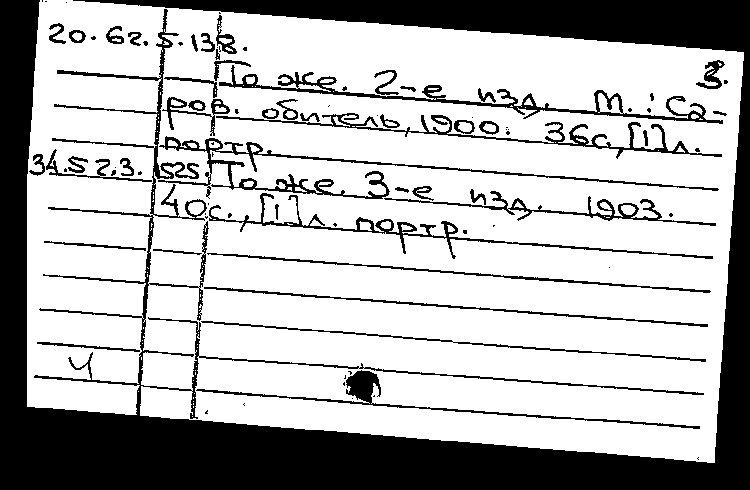 20.62.5.138.
3.
То же. 2-е изд. М.: Са-
ров. обитель, 1900. 36с., [1]л.
портр.
34.52.3.1525. То же. 3-е изд. 1903.
40с., [1]л. портр.
Ч